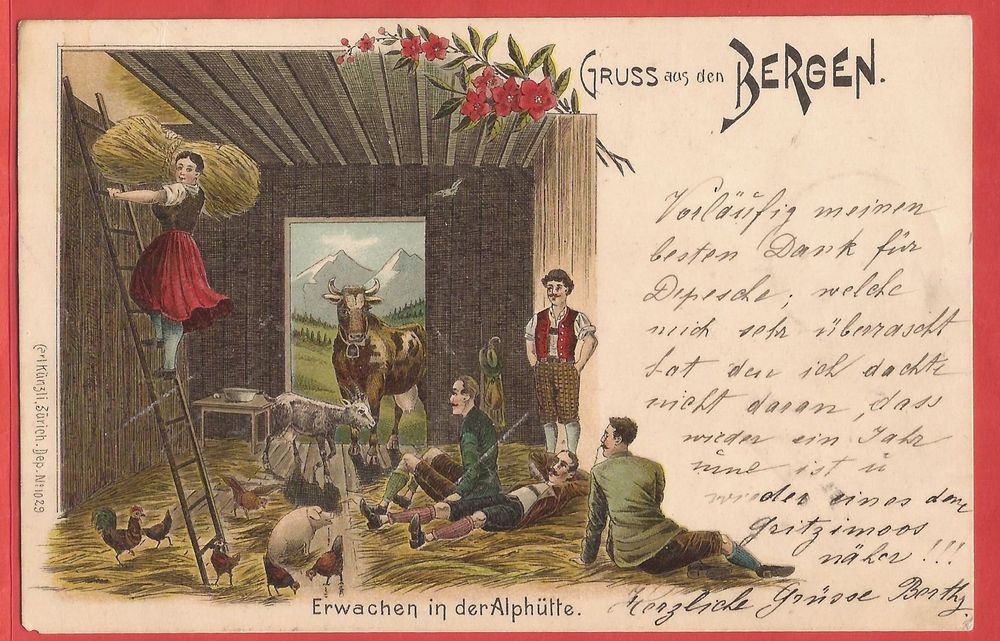 GRUSS aus den BERGEN.
Vorläufig meinen
besten Dank für
Depesche, welche
mich sehr überrascht
hat den ich dachte
nicht daran, dass
wieder ein Jahr
ume ist u
wieder eines dem
Gritzimoos
näher !!!
Herzliche Grüsse Berthy
Erwachen in der Alphütte.
Crl Künzli, Zürich. Dep. No 1029